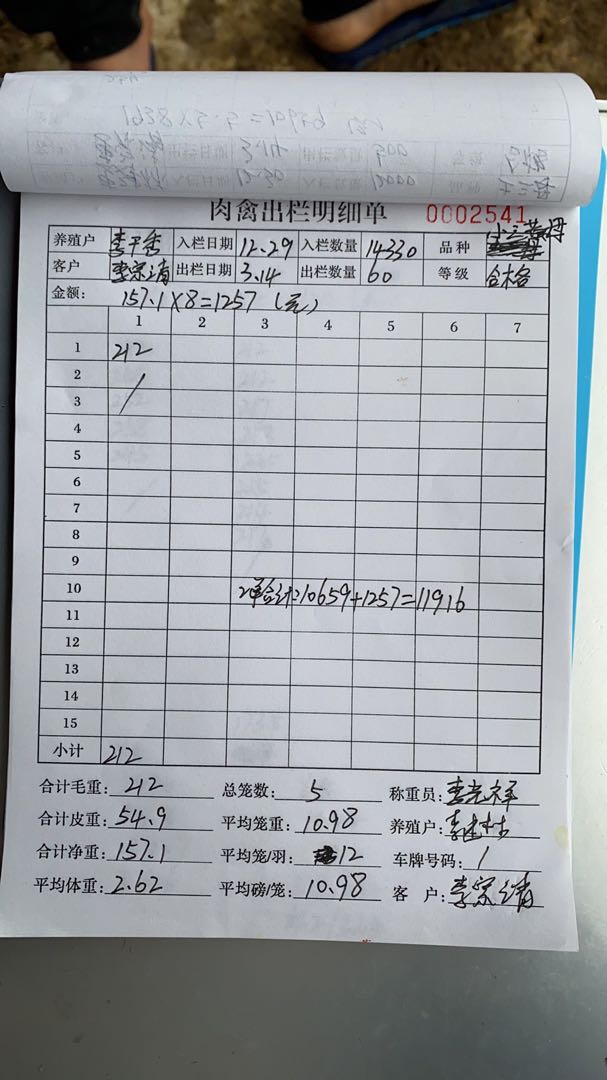 肉禽出栏明细单 0002541
养殖户 李平香 入栏日期 12.29 入栏数量 14330 品种
客户 李宗靖 出栏日期 3.14 出栏数量 60 等级 合格
金额: 157.1×8=1257 (元)
1 2 3 4 5 6 7
1 212
2
3
4
5
6
7
8
9
10 2单合计:10659+1257=11916
11
12
13
14
15
小计 212
合计毛重: 212 总笼数: 5 称重员:
合计皮重: 54.9 平均笼重: 10.98 养殖户:
合计净重: 157.1 平均笼/羽: 12 车牌号码: 1
平均体重: 2.62 平均磅/笼: 10.98 客 户: 李宗靖